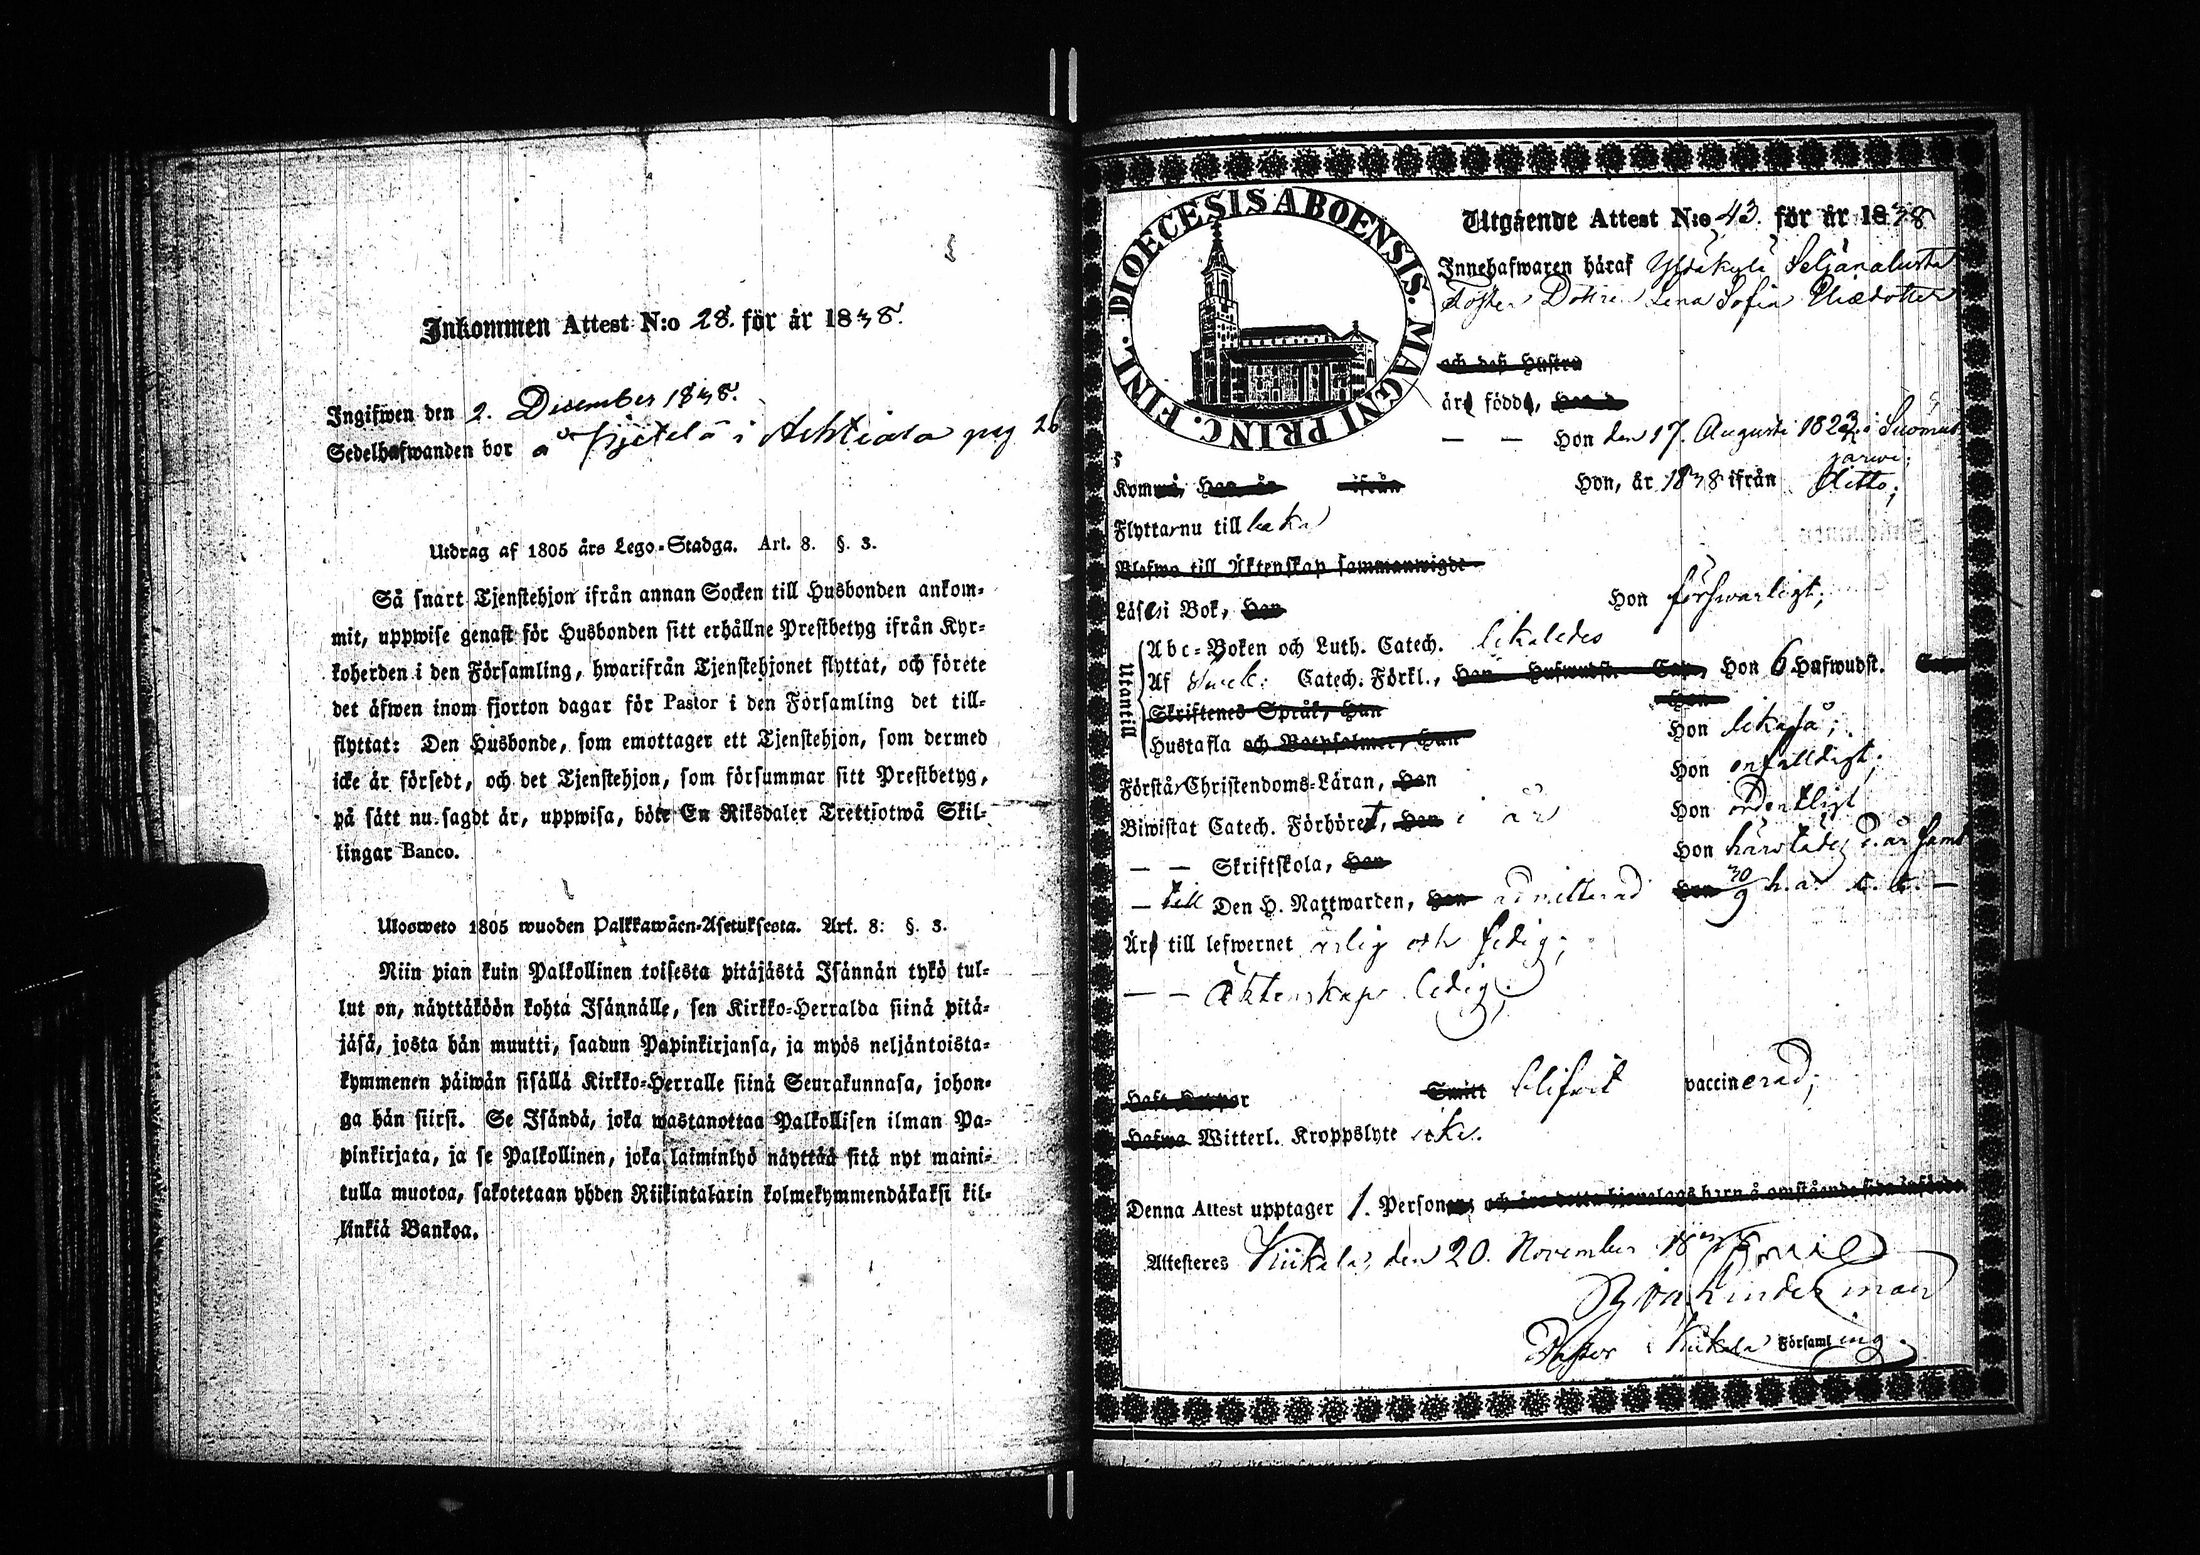 Inkommen Attest N:o 28. för år 1838.
Ingifwen den 2. December 1838.
Sedelhafwanden bor å Kjetelä i Achtiala pag 26
Utdrag af 1805 års Lego-Stadga. Art. 8. §. 3.
Så snart Tjenstehjon ifrån annan Socken till Husbonden ankom-
mit, uppwise genast för Husbonden sitt erhållne Prestbetyg ifrån Kyr-
koherden i den Församling, hwarifrån Tjenstehjonet flyttat, och förete
det äfwen inom fjorton dagar för Pastor i den Församling det till-
flyttat: Den Husbonde, som emottager ett Tjenstehjon, som dermed
icke är försedt, och det Tjenstehjon, som försummar sitt Prestbetyg,
på sätt nu sagdt är, uppwisa, böte En Riksdaler Trettiotwå Skil-
lingar Banco.
Ulosweto 1805 wuoden Palkkawäen-Asetuksesta. Art. 8: §. 3.
Niin pian kuin Palkollinen toisesta pitäjästä Isännän tykö tul-
lut on, näyttäköön kohta Isännälle, sen Kirkko-Herralda siinä pitä-
jäsä, josta hän muutti, saadun Papinkirjansa, ja myös neljäntoista-
kymmenen päiwän sisällä Kirkko-Herralle siinä Seurakunnasa, johon-
ga hän siirsi. Se Isändä, joka wastanottaa Palkollisen ilman Pa-
pinkirjata, ja se Palkollinen, joka laiminlyö näyttää sitä nyt maini-
tulla muotoa, sakotetaan yhden Riikintalarin kolmekymmendäkaksi kil-
linkiä Bankoa.
DIOECESIS ABOENSIS. MAGNI PRINC. FINL.
Utgående Attest N:o 43. för år 1838
Innehafwaren häraf Yldäkylä Seljänalusta
Foster Dottren Lena Sofia Eliædotter
och deß Hustru
äro födde, Han d
— — Hon den 17. Augusti 1823 i Suomus
jarwi;
Komma, Han år ifrån Hon, år 1838 ifrån ditto;
Flyttar nu tillbaka
Blefwo till Äktenskap sammanwigde
Läser i Bok, Han Hon förswarligt;
Utantill
Abc-Boken och Luth. Catech. likaledes
Af Sweb: Catech. Förkl., Han Hufwudst. Cap, Hon 6 Hufwudst. Cap
Skriftenes Språk, Han Hon
Hustafla och Botpsalmer, Han Hon likaså;
Förstår Christendoms-Läran, Han Hon enfaldigt;
Biwistat Catech. Förhöret, Han i år Hon ordentligt
— — Skriftskola, Han Hon härstädes
— till Den H. Nattwarden, Han admitterad Hon 30/9 h. a.
Äro till lefwernet ärlig och fedig;
— — Äktenskaps ledig;
Haft Koppor Smitt blifwit vaccinerad;
Hafwa Witterl. Kroppslyte icke.
Denna Attest upptager 1. Personer, och äro detta hjonelags barn å omstående sida införde
Attesteras Kiikala, den 20. November 1838
Pastor i Kiikala Församling.